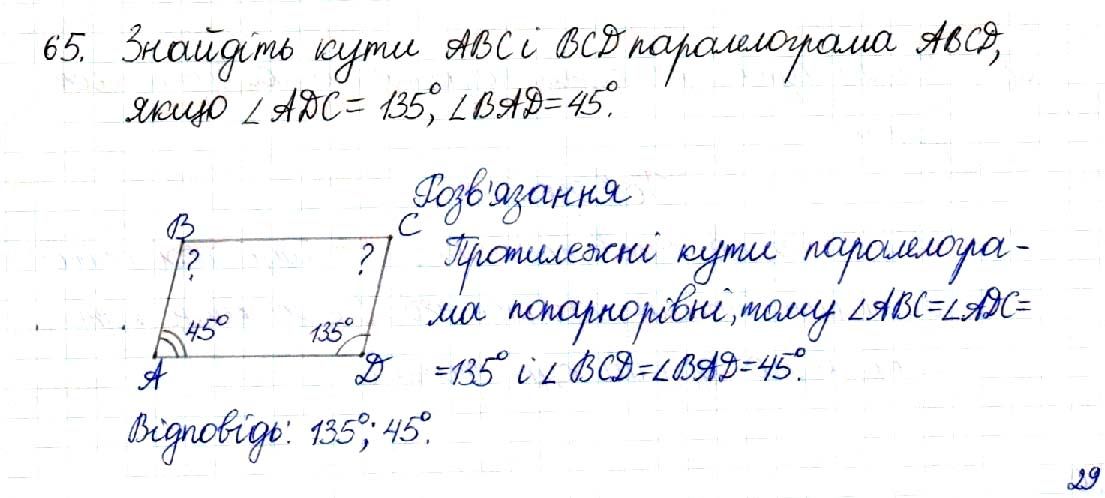 65. Знайдіть кути ABC і BCD паралелограма ABCD,
якщо ∠ADC = 135°, ∠BAD = 45°.
Розв'язання
B
C
?
?
45°
135°
A
D
Протилежні кути паралелогра-
ма попарнорівні, тому ∠ABC=∠ADC=
=135° і ∠BCD=∠BAD=45°.
Відповідь: 135°; 45°.
29